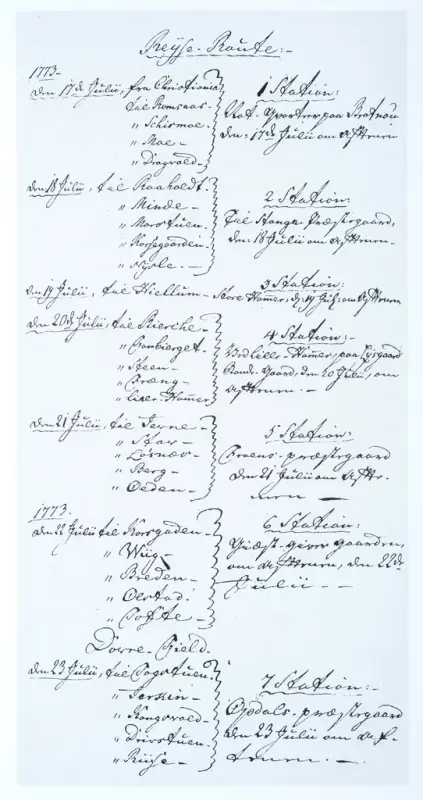 Reyse-Route:-
1773-
Den 17de Julii, fra Christiania
til Romsaas-
" Schiesmoe-
" Moe-
" Dragvold-
1 Station:
Nat-Qvarteer paa
den: 17de Julii om Aftenen
den 18 Julii, til Raaholdt-
" Minde-
" Morstuen-
" Korsegaarden-
"
2 Station:
Til Stange Præstegaard,
den: 18 Julii om Aftenen-
3 Station:
den 19 Julii, til Kiellum- Store Hamer, d: 19 Juli: om Aftenen
den 20de Julii, til
"
" Steen-
" Bræng-
" Lille-Hamer
4 Station:-
Ved Lille-Hamer, paa
Gaard, den 20 Julii, om
Aftenen.-
den 21 Julii, til
" Star-
" Løsnæs-
" Berg-
" Oeden-
5 Station:
præstegaard
den 21 Julii om Afte-
nen-
1773.
den 22 Julii til Korsgaden-
" Wiig-
" Breden-
" Oestad:
" Tofte-
6 Station:
Giæst-giver Gaarden,
om Aftenen, den 22de
Julii--
Dovre-Field.
den 23 Julii, til Fogstuen-
" Jerkin-
" Kongsvold-
" Drivstuen-
" Riise-
7 Station:-
Opdals-præstegaard
den 23 Julii om Af-
tenen-.